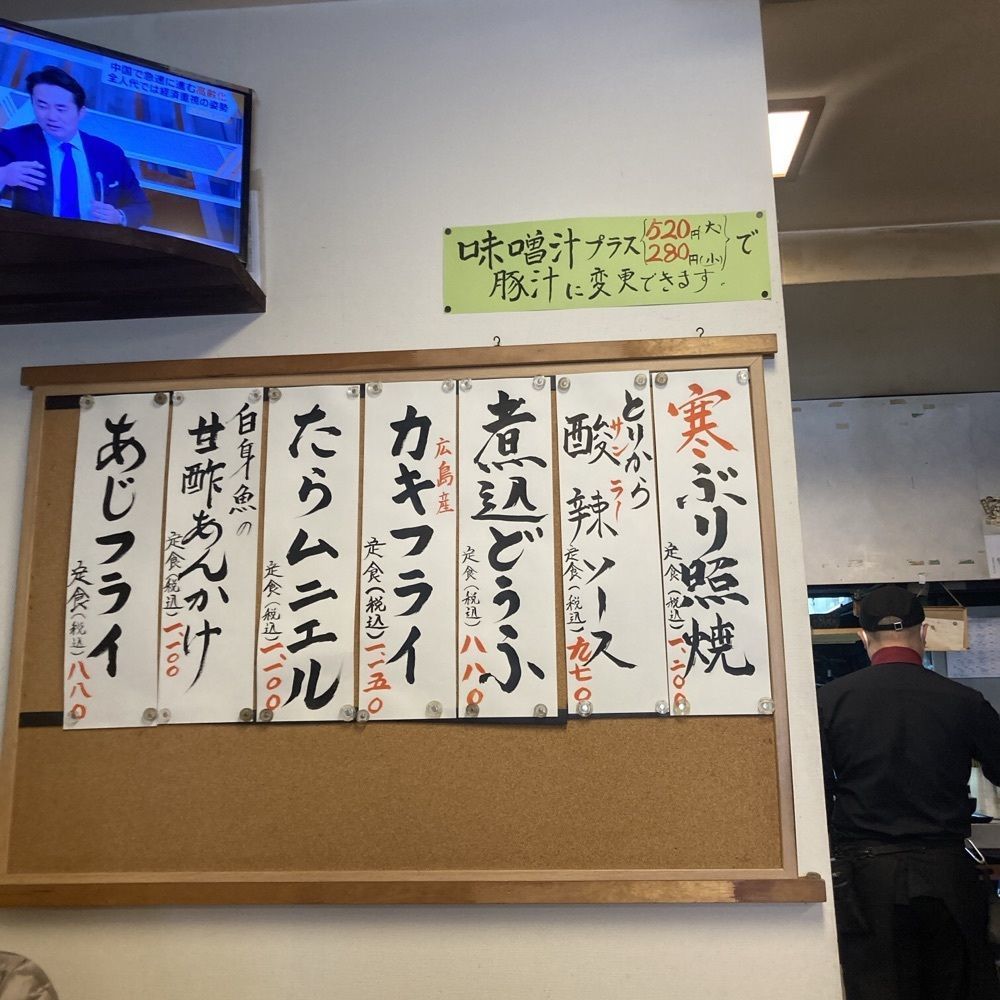 中国で急速に進む高齢化
全人代では経済重視の姿勢
味噌汁プラス{520円(大) 280円(小)}で
豚汁に変更できます.
寒ぶり照焼
定食(税込)一、二〇〇
とりから
酸辣ソース
サンラー
定食(税込)九七〇
煮込どうふ
定食(税込)八八〇
広島産
カキフライ
定食(税込)一、一五〇
たらムニエル
定食(税込)一、一〇〇
白身魚の
甘酢あんかけ
定食(税込)一、一〇〇
あじフライ
定食(税込)八八〇